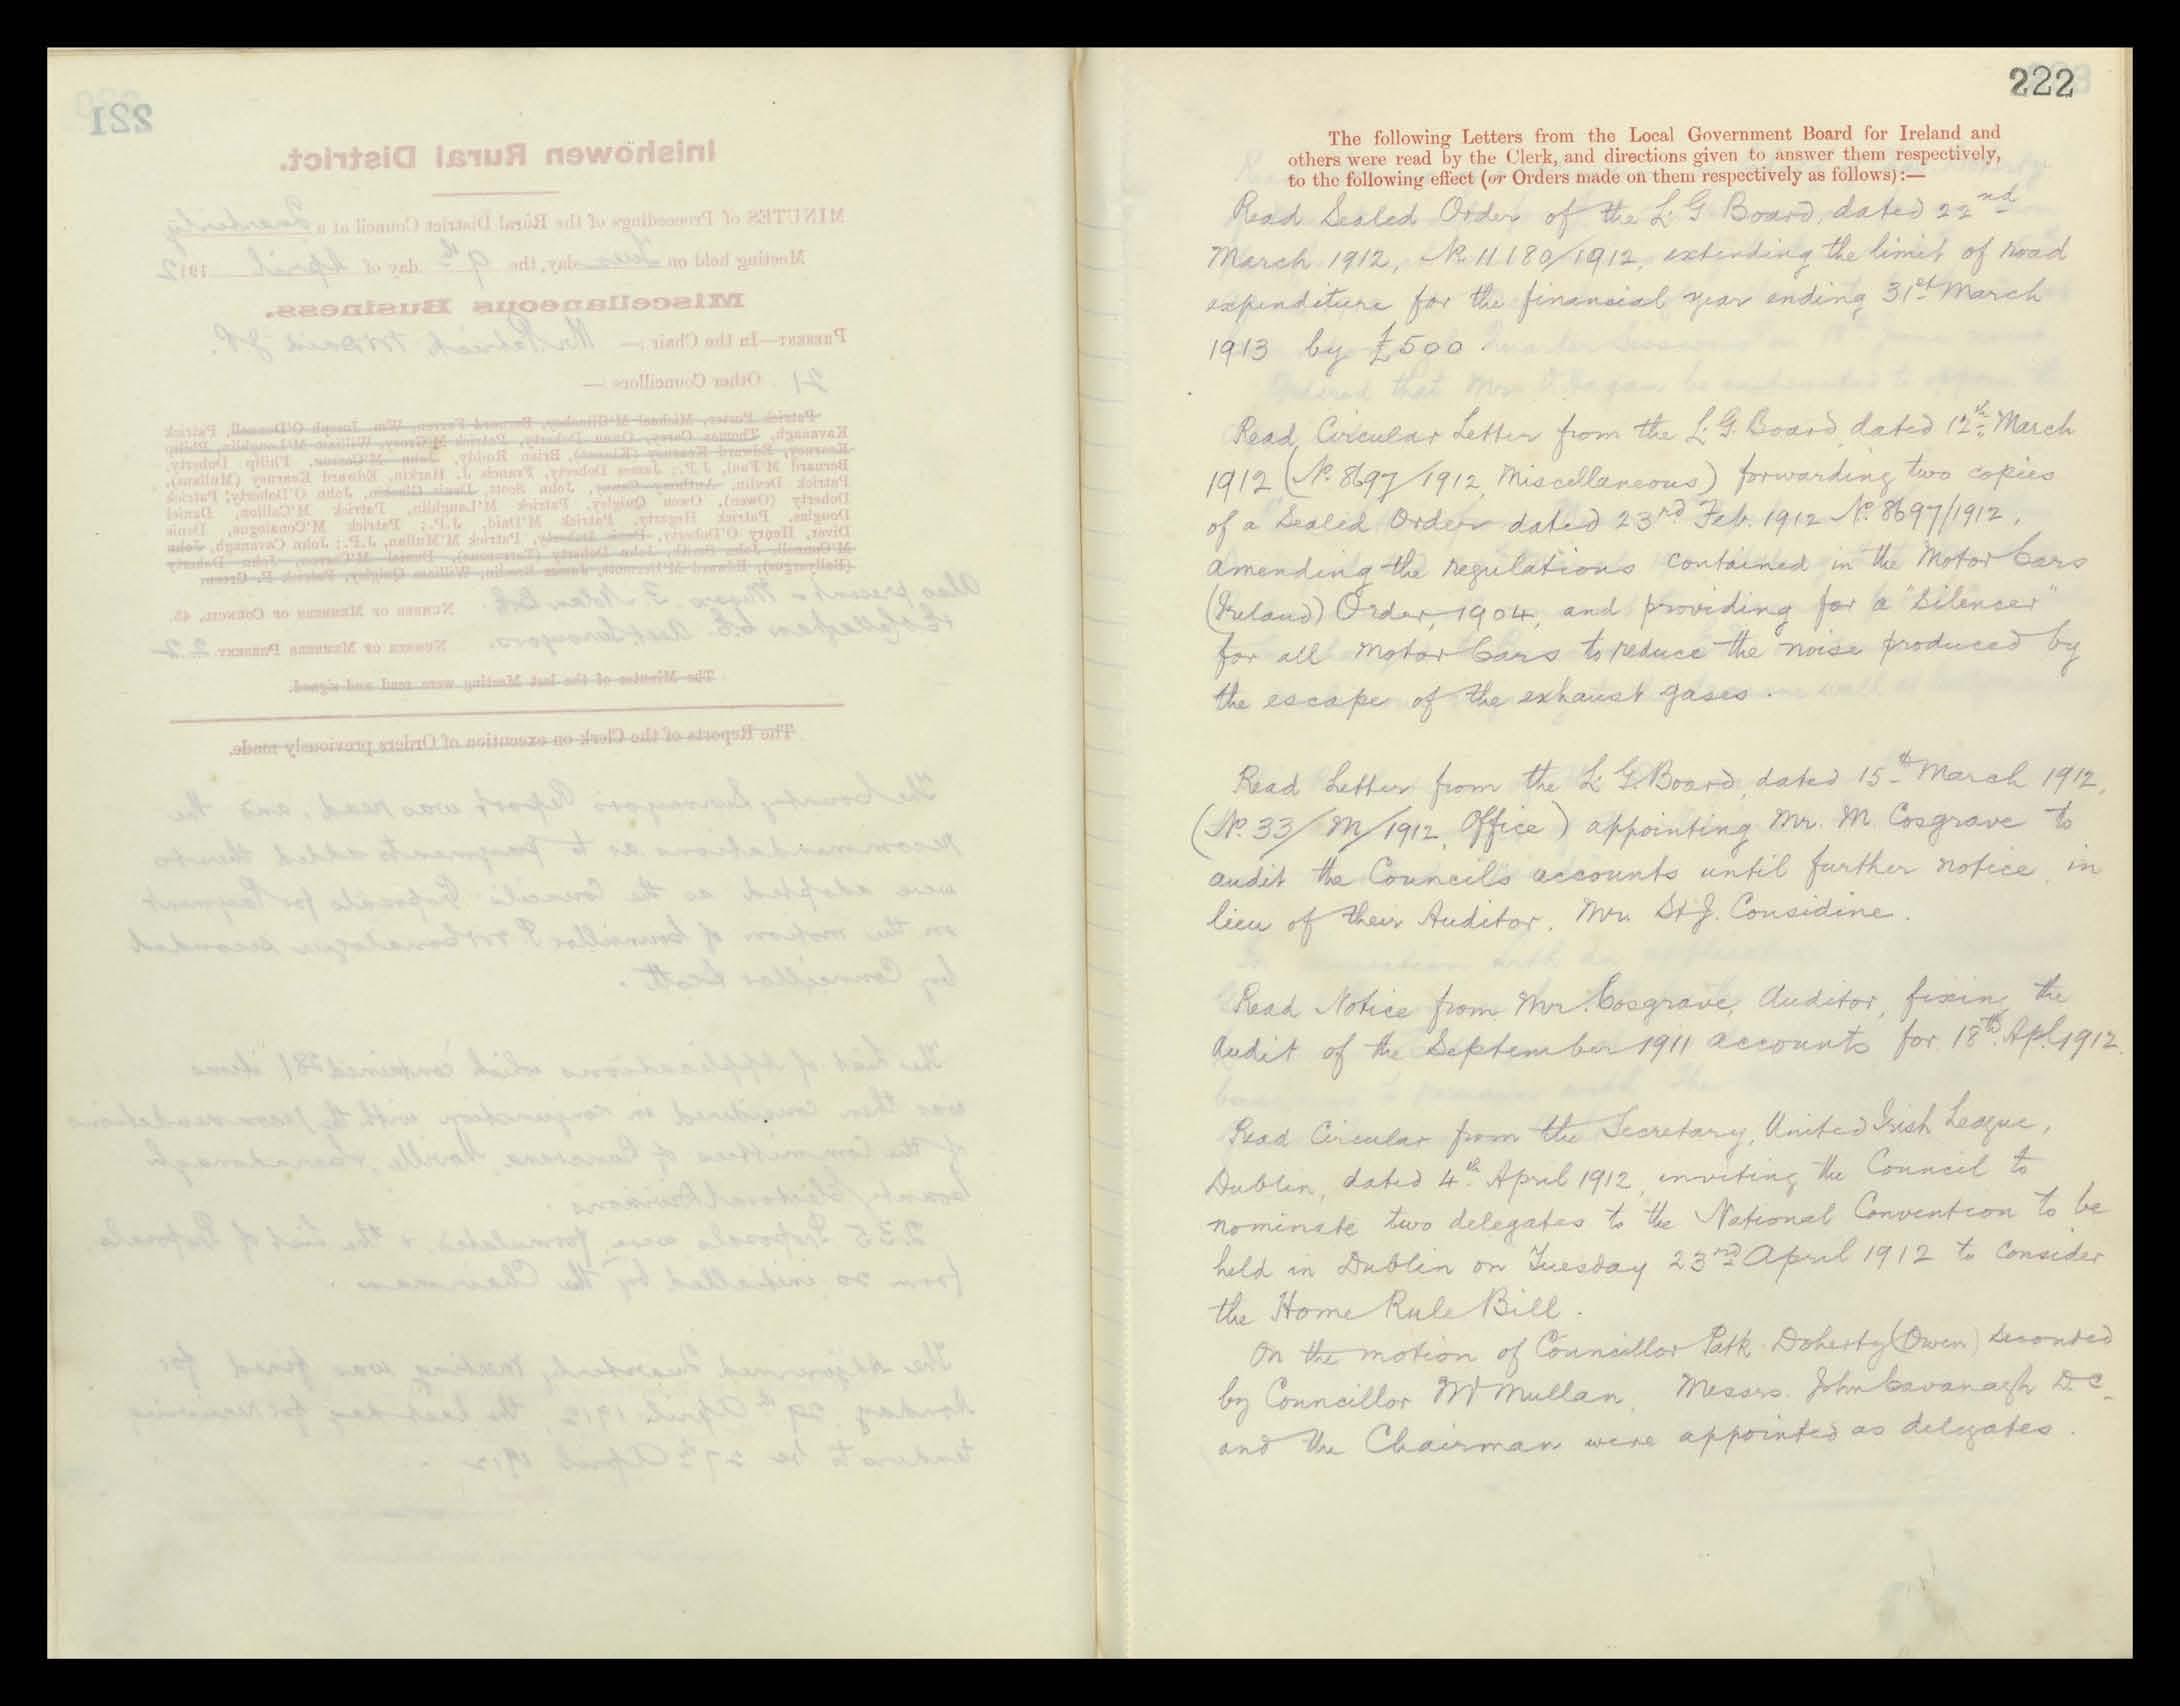 222
The following Letters from the Local Government Board for Ireland and
others were read by the Clerk, and directions given to answer them respectively,
to the following effect (or Orders made on them respectively as follows):—
Read Sealed Order of the L. G. Board, dated 22nd
March 1912, No. 11180/1912, extending the limit of road
expenditure for the financial year ending 31st March
1913 by £500.
Read Circular Letter from the L. G. Board dated 12th March
1912 (No. 8697/1912, Miscellaneous) forwarding two copies
of a Sealed Order dated 23rd Feb. 1912 No. 8697/1912,
amending the regulations contained in the Motor Cars
(Ireland) Order, 1904, and providing for a "Silencer"
for all Motor Cars to reduce the noise produced by
the escape of the exhaust gases.
Read Letter from the L. G. Board, dated 15th March 1912,
(No. 33/M/1912, Office) appointing Mr. M. Cosgrave to
audit the Council's accounts until further notice, in
lieu of their Auditor, Mr. St J. Considine.
Read Notice from Mr. Cosgrave, Auditor, fixing the
Audit of the September 1911 accounts for 18th Apl. 1912.
Read Circular from the Secretary, United Irish League,
Dublin, dated 4th April 1912, inviting the Council to
nominate two delegates to the National Convention to be
held in Dublin on Tuesday 23rd April 1912 to consider
the Home Rule Bill.
On the motion of Councillor Patk. Doherty (Owen) seconded
by Councillor McMullan, Messrs. John Cavanagh D.C.
and the Chairman were appointed as delegates.
221
Inishowen Rural District.
MINUTES of Proceedings of the Rural District Council at a Quarterly
Meeting held on Tuesday, the 9th day of April 1912
Miscellaneous Business.
PRESENT—In the Chair:— Mr Patrick McDaid J.P.
21 Other Councillors:—
NUMBER OF MEMBERS OF COUNCIL, 43.
NUMBER OF MEMBERS PRESENT, 22
The Minutes of the last Meeting were read and signed.
The Reports of the Clerk on execution of Orders previously made.
The County Surveyor's Report was read, and the
recommendations as to payments added thereto
were adopted as the Council's Proposals for Payment
on the motion of Councillor P. McConalogue seconded
by Councillor Scott.
The List of Applications which contained 281 items
was then considered in conjunction with the recommendations
of the Committees of
County Electoral Divisions.
235 Proposals were formulated, & the List of Proposals
from so initialled by the Chairman.
The Adjourned Quarterly Meeting was fixed for
Monday 29th April 1912, the last day for receiving
tenders to be 27th April 1912.